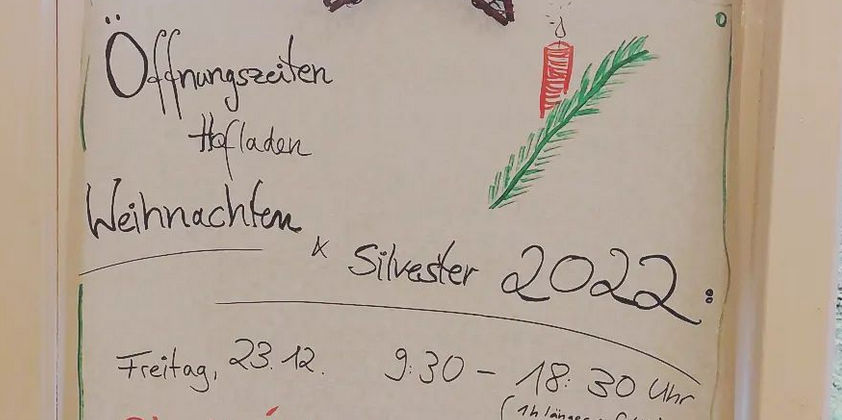 Öffnungszeiten
Hofladen
Weihnachten
& Silvester 2022:
Freitag, 23.12. 9:30 - 18:30 Uhr
(1h länger